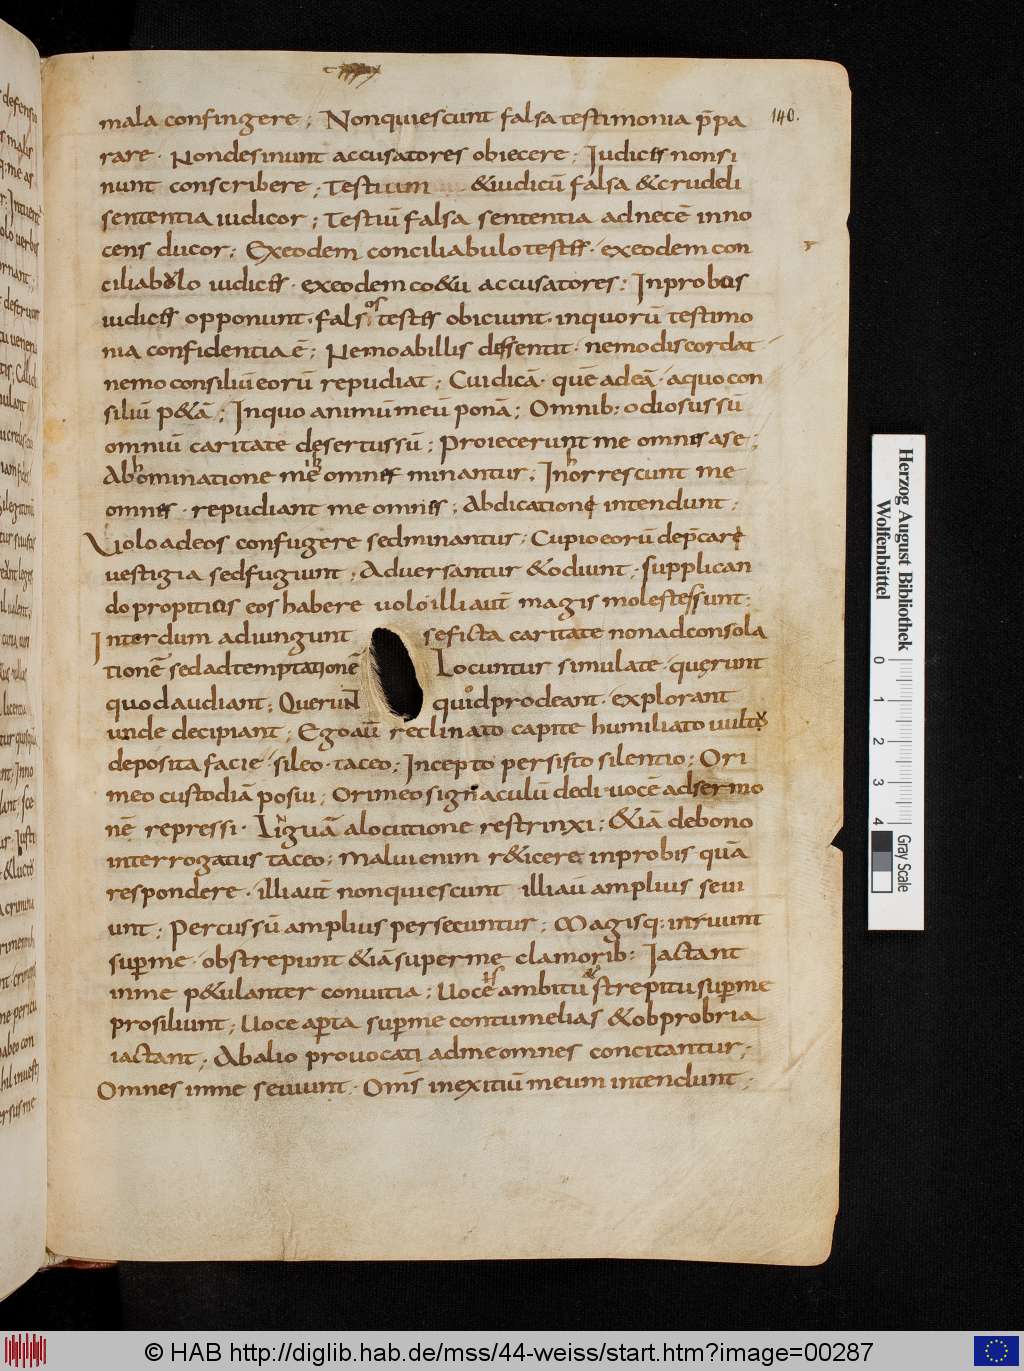 140.
mala confingere; Non quiescunt falsa testimonia p̄pa
rare · Non desinunt accusatores obiecere; Iudices non si
nunt conscribere; Testium &iudicū falsa &crudeli
sententia iudicor; Testiū falsa sententia ad necē inno
cens ducor; Ex eodem conciliabulo testes · ex eodem con
ciliabulo iudices · ex eodem co&u accusatores; Inprobos
iudices opponunt · falsos testes obiciunt · in quorū testimo
nia confidentia ē; Nemo ab illis dessentit · nemo discordat
nemo consiliū eorū repudiat; Cui dicā · quē adeā · a quo con
siliū p&ā; In quo animū meū ponā; Omnib; odiosus sū
omniū caritate desertus sū; Proiecerunt me omnes a se;
Abhominatione mihi omnes minantur; Inhorrescunt me
omnes · repudiant me omnes; Abdicatione intendunt;
Uolo ad eos confugere sed minantur; Cupio eorū dep̄care
uestigia sed fugiunt; Aduersantur &odiunt · supplican
do propitios eos habere uolo illi aut̄ magis molestes sunt;
Interdum adiungunt se ficta caritate non ad consola
tionē sed ad temptationē Locuntur simulate · querunt
quod audiant; Querunt quid prodeant · explorant
unde decipiant; Ego aū reclinato capite humiliato uultu
deposita facie · sileo · taceo; Incepto persisto silentio; Ori
meo custodiā posui; Ori meo signaculū dedi uocē ad sermo
nē repressi · Linguā a locutione restrinxi; &iā de bono
interrogatus taceo; Malui enim r&icere inprobis quā
respondere · illi aut̄ non quiescunt illi aū amplius seui
unt; Percussū amplius persecuntur; Magisq; inruunt
sup me · obstrepunt &iā super me clamorib; Iactant
in me p&ulanter conuitia; Uoceis ambitū ac strepitu sup me
prosiliunt; Uoce apta sup me contumelias &obprobria
iactant; Ab alio prouocati ad me omnes concitantur;
Omnes in me seuiunt · Om̄s in exitiū meum intendunt;
Herzog August Bibliothek
Wolfenbüttel
0 1 2 3 4
Gray Scale
© HAB http://diglib.hab.de/mss/44-weiss/start.htm?image=00287